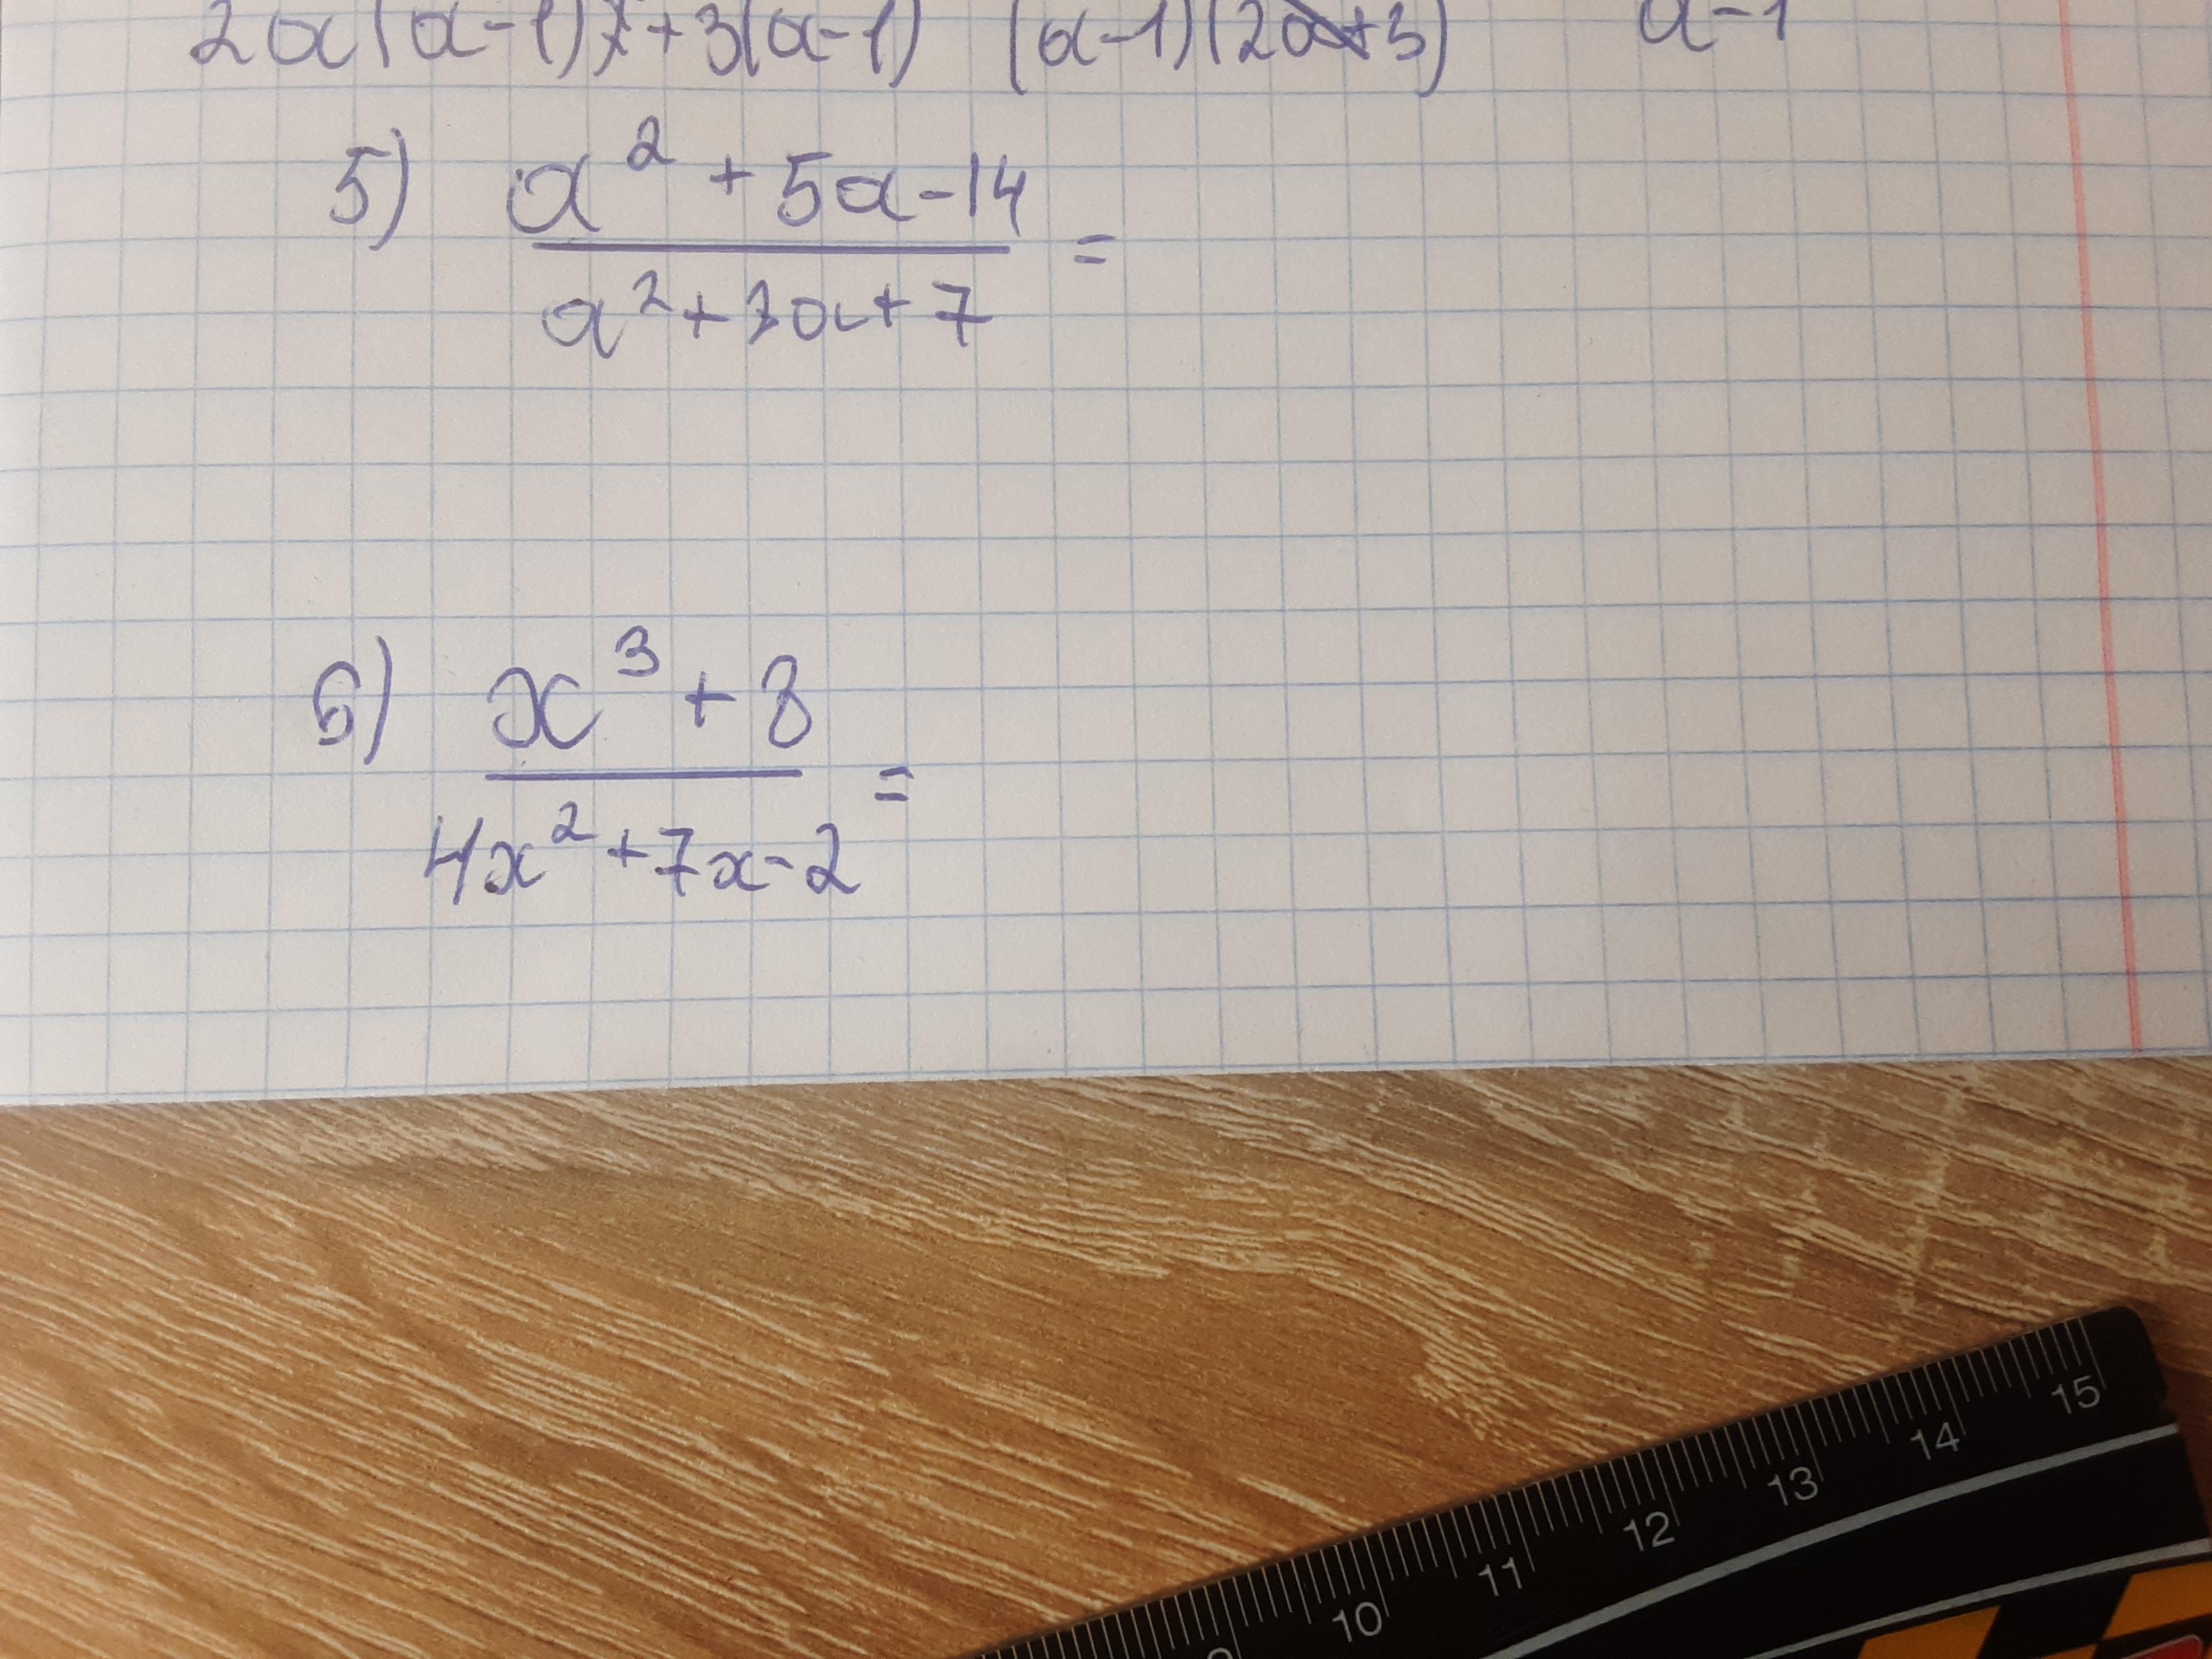 2a(a-1)+3(a-1) (a-1)(2a+3) a-1
5) a² + 5a - 14
=
a² + 3a + 7
6) x³ + 8
=
4x² + 7x - 2
15
14
13
12
11
10
9